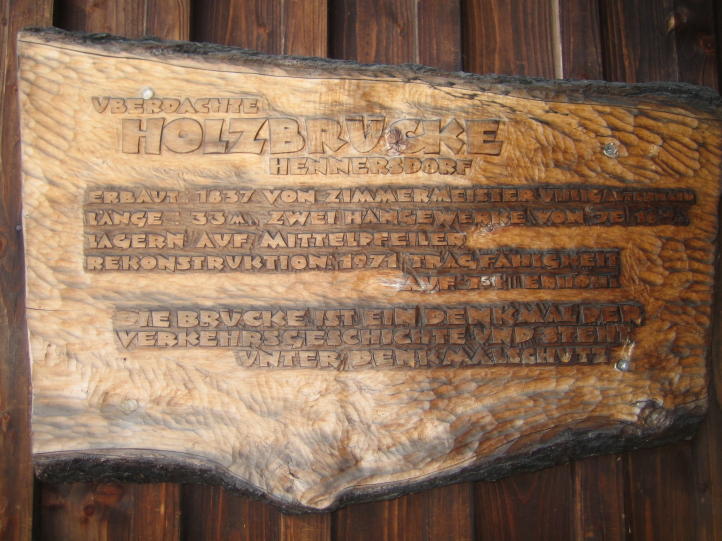 ÜBERDACHTE
HOLZBRÜCKE
HENNERSDORF
ERBAUT: 1837 VON ZIMMERMEISTER
LÄNGE: 33M, ZWEI HÄNGEWERKE VON JE
LAGERN AUF MITTELPFEILER
REKONSTRUKTION: 1971 TRAGFÄHIGKEIT
AUF
DIE BRÜCKE IST EIN DENKMAL DER
VERKEHRSGESCHICHTE UND STEHT
UNTER DENKMALSCHUTZ